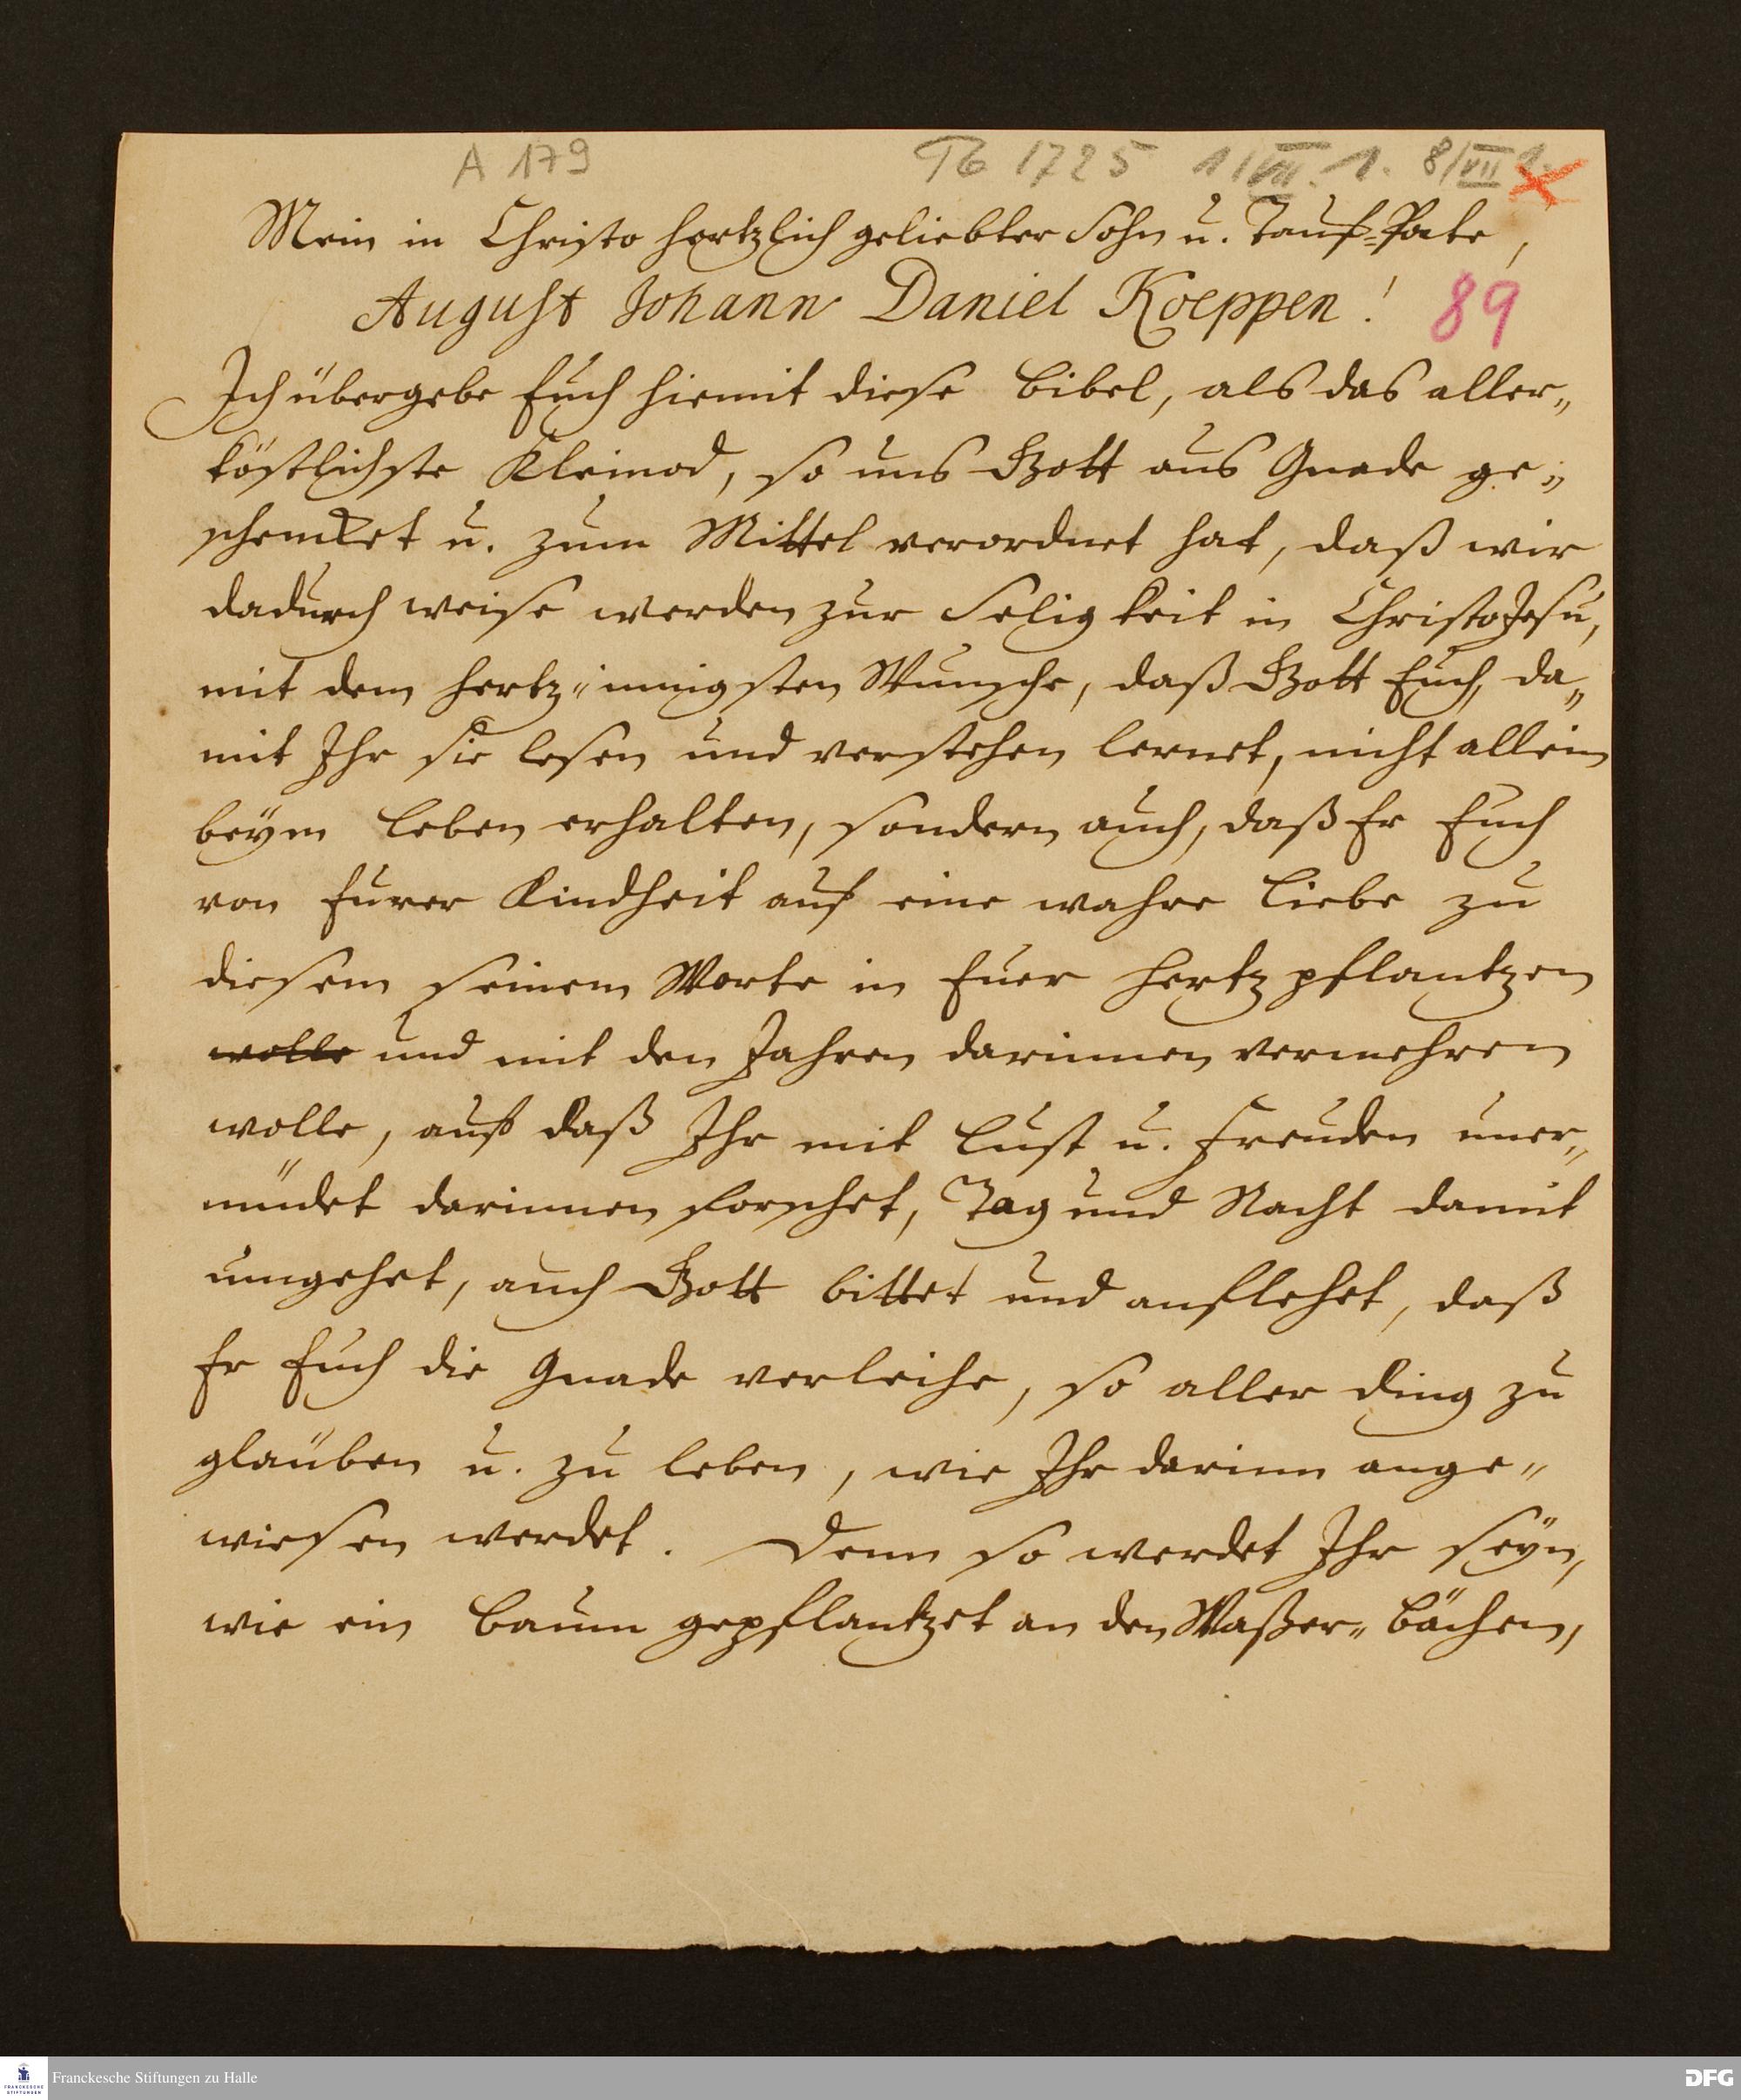 A 179
Tb 1725 1/VII. 1. 8/VII 1.
Mein in Christo hertzlich geliebter Sohn u. Tauf-Pate,
August Johann Daniel Koeppen!
89
Ich übergebe Euch hiemit diese Bibel, als das aller„
köstlichste Kleinod, so uns Gott aus Gnade ge„
schencket u. zum Mittel verordnet hat, daß wir
dadurch weise werden zur Seligkeit in Christo Jesu,
mit dem hertz„innigsten Wunsche, daß Gott Euch, da„
mit Ihr sie lesen und verstehen lernet, nicht allein
beym Leben erhalten, sondern auch, daß Er Euch
von Eurer Kindheit auf eine wahre Liebe zu
diesem seinem Worte in Euer Hertz pflantzen
wolle und mit den Jahren darinnen vermehren
wolle, auf daß Ihr mit Lust u. Freuden uner„
müdet darinnen forschet, Tag und Nacht damit
umgehet, auch Gott bittet und anflehet, daß
Er Euch die Gnade verleihe, so aller Ding zu
gläuben u. zu leben, wie Ihr darinn ange„
wiesen werdet. Denn so werdet Ihr seyn,
wie ein Baum gepflantzet an den Waßer„Bächen,
Franckesche Stiftungen zu Halle
DFG